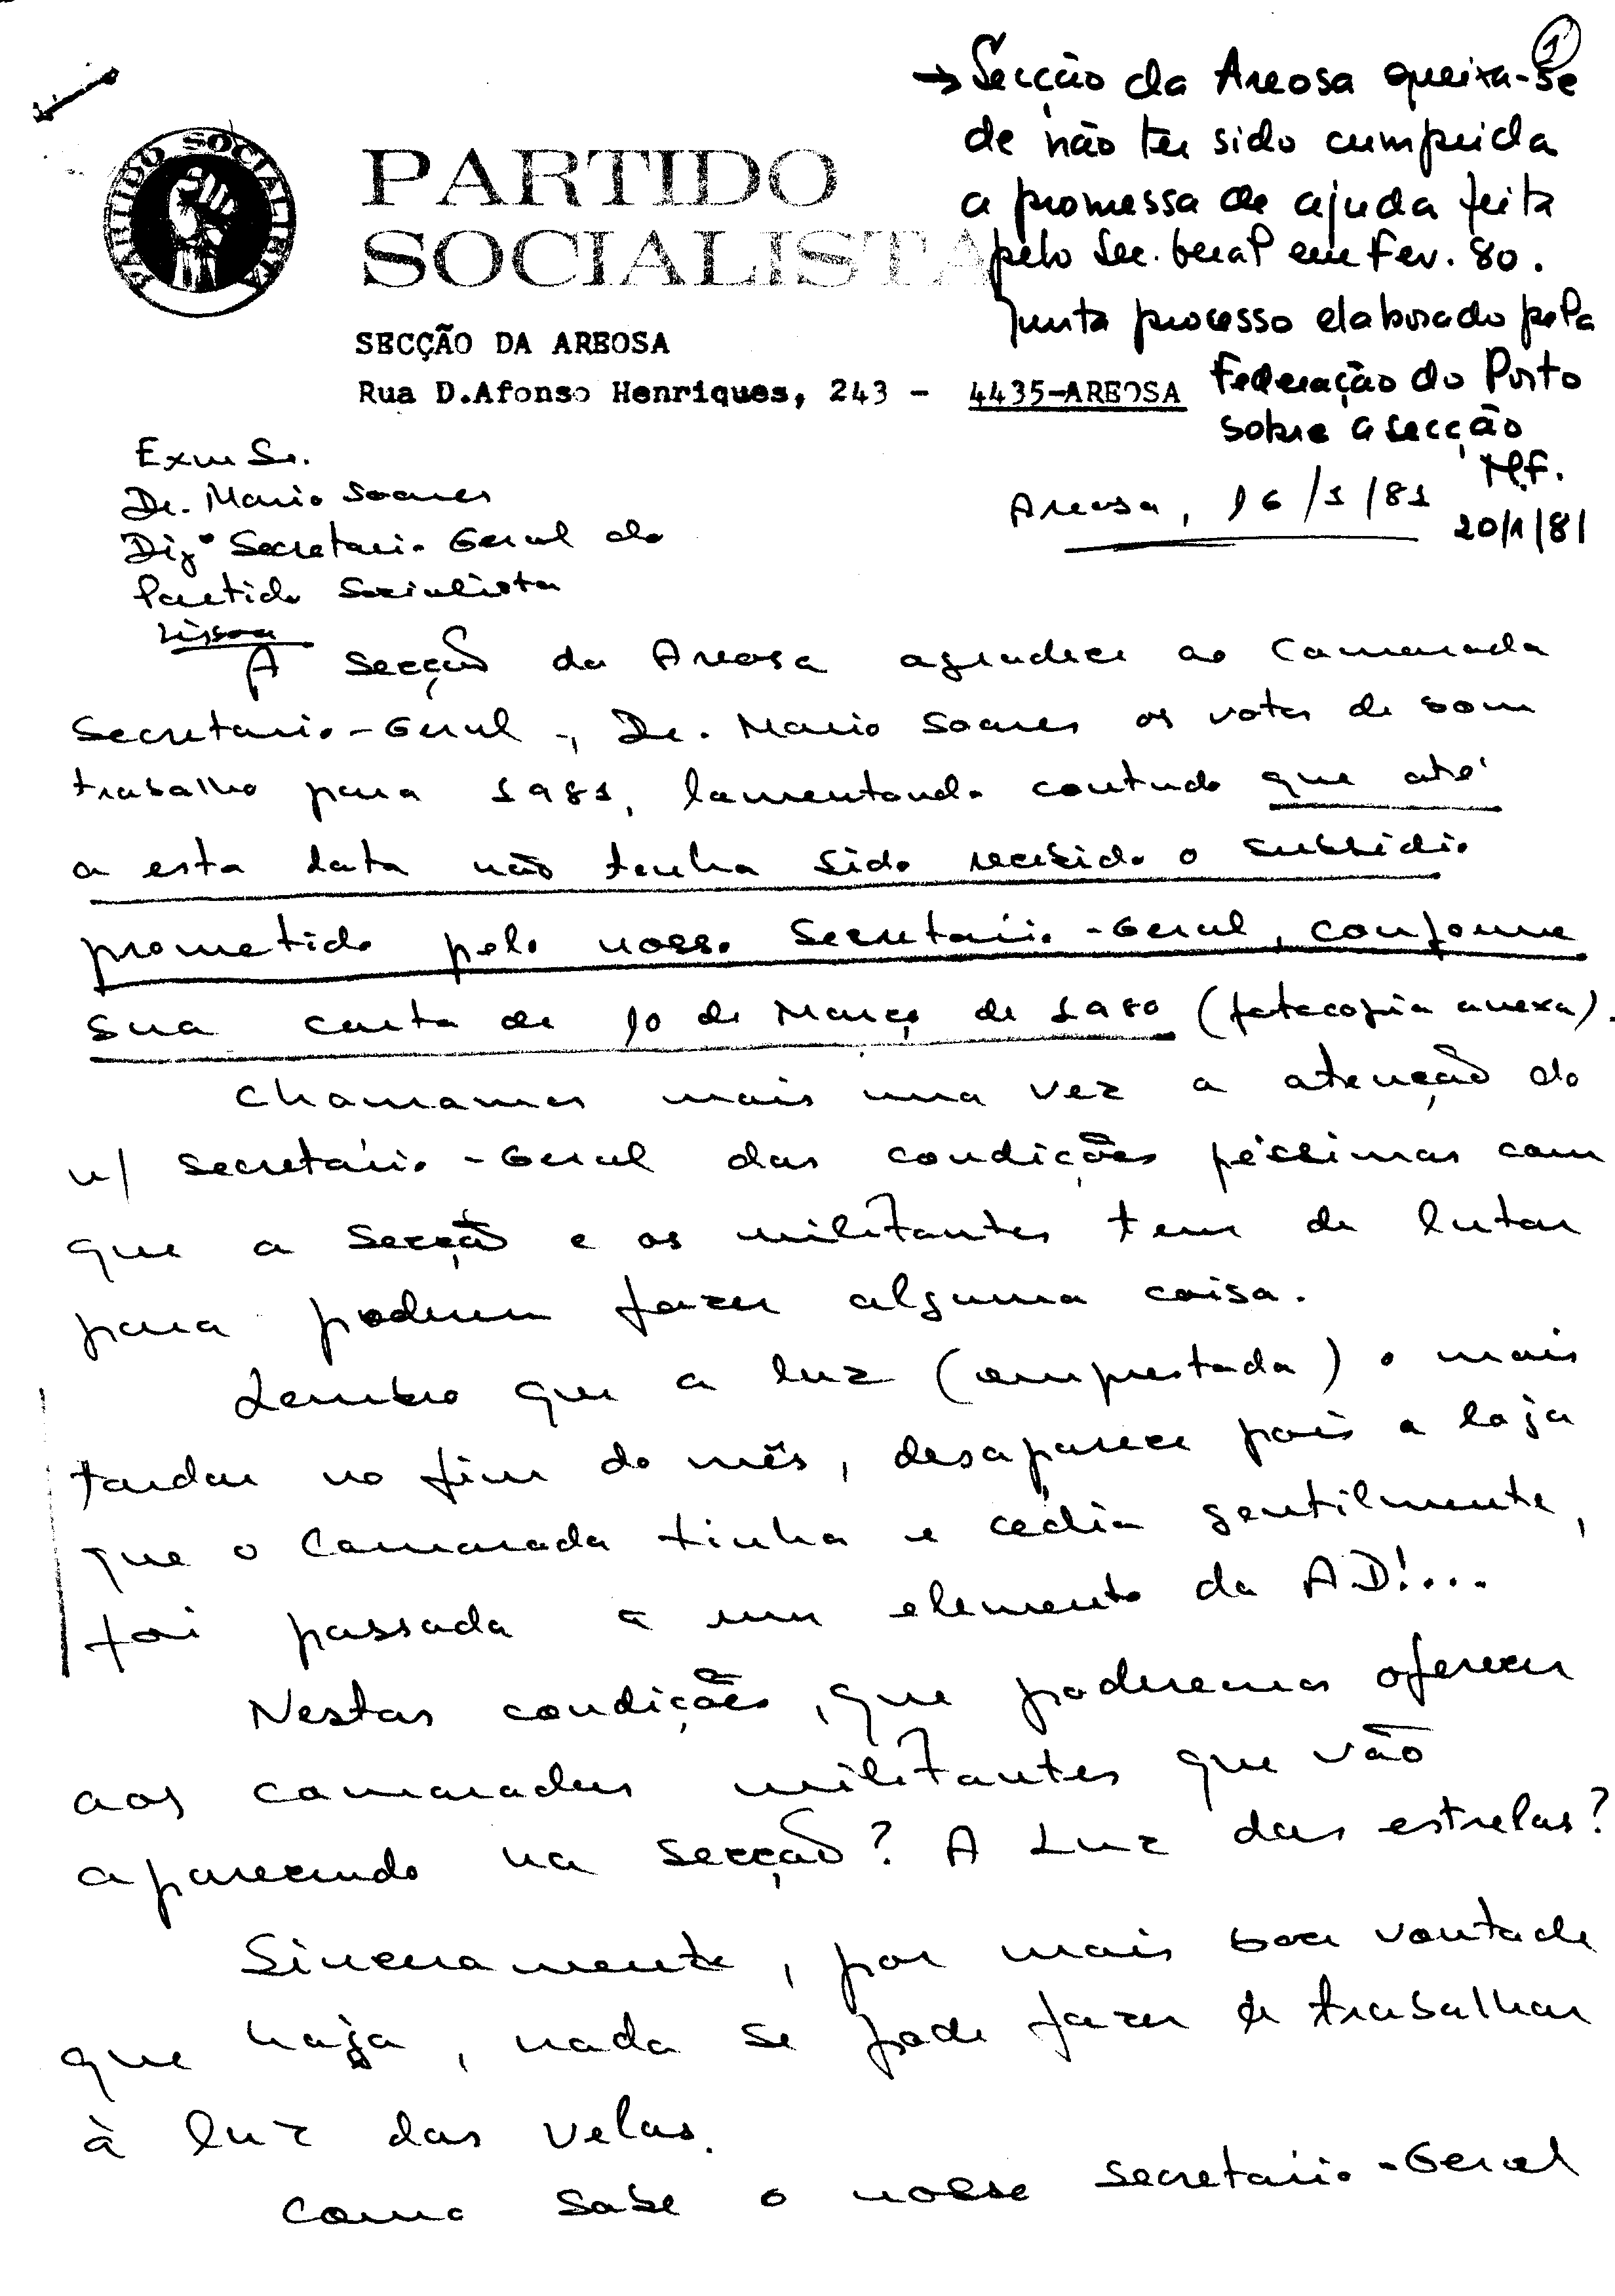 1
→ Secção da Areosa queixa-se
de não ter sido cumprida
a promessa de ajuda feita
pelo Sec. Geral em Fev. 80.
Junta processo elaborado pela
Federação do Porto
sobre a secção
M.F.
20/1/81
PARTIDO SOCIALISTA
PARTIDO
SOCIALISTA
SECÇÃO DA AREOSA
Rua D.Afonso Henriques, 243 - 4435-AREOSA
Exm Sr.
Dr. Mario Soares
Digº Secretario Geral do
Partido Socialista
Lisboa
Areosa, 16/1/81
A Secção da Areosa agradece ao Camarada
Secretario-Geral, Dr. Mario Soares os votos de bom
trabalho para 1981, lamentando contudo que até
a esta data não tenha sido recebido o subsidio
prometido pelo nosso Secretário-Geral, conforme
sua carta de 10 de Março de 1980 (fotocopia anexa).
Chamamos mais uma vez a atenção do
n/ Secretário-Geral das condições péssimas com
que a Secção e os militantes tem de lutar
para poderem fazer alguma coisa.
Lembro que a luz (emprestada) o mais
tardar no fim do mês, desaparece pois a loja
que o Camarada tinha e cedia gentilmente,
foi passada a um elemento da AD!...
Nestas condições, que poderemos oferecer
aos camaradas militantes que vão
aparecendo na Secção? A Luz das estrelas?
Sinceramente, por mais boa vontade
que haja, nada se pode fazer e trabalhar
à luz das velas.
Como sabe o nosso Secretário-Geral